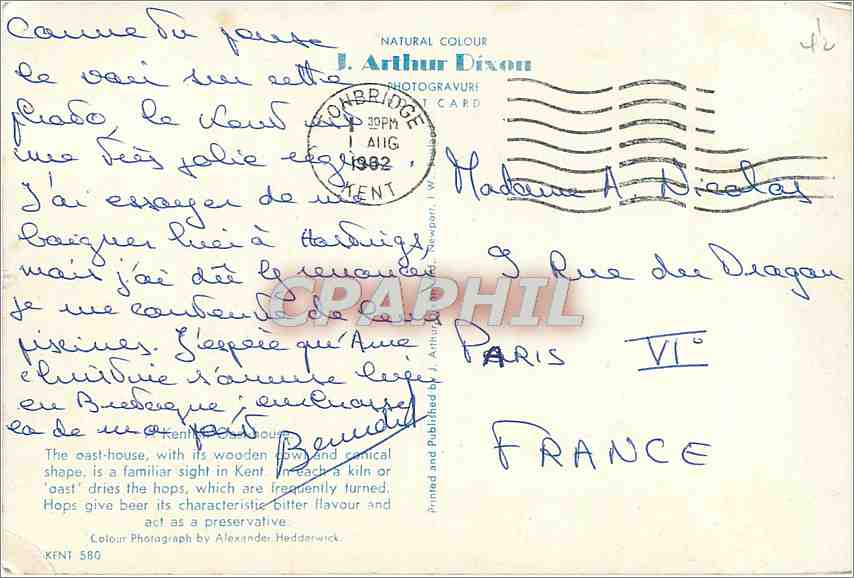 Comme tu penses
le vois sur cette
photo, le Kent est
une très jolie région.
J'ai essayer de me
baigner hier à Hastings,
mais j'ai dû le renoncer
je me contente de la
piscines. J'espère qu'Anne
Christine s'amuse bien
en Bretagne ; embrasse
la de ma part
Benedict
A Kentish Oasthouse
The oast-house, with its wooden cowl and conical
shape, is a familiar sight in Kent. In each a kiln or
'oast' dries the hops, which are frequently turned.
Hops give beer its characteristic bitter flavour and
act as a preservative.
Colour Photograph by Alexander Hedderwick.
KENT 580
NATURAL COLOUR
J. Arthur Dixon
PHOTOGRAVURE
POST CARD
TONBRIDGE
30PM
1 AUG
1962
KENT
Printed and Published by J. Arthur Dixon Ltd., Newport, I.W., England
Madame A. Nicolas
9 Rue du Dragon
PARIS VI°
FRANCE
CPAPHIL